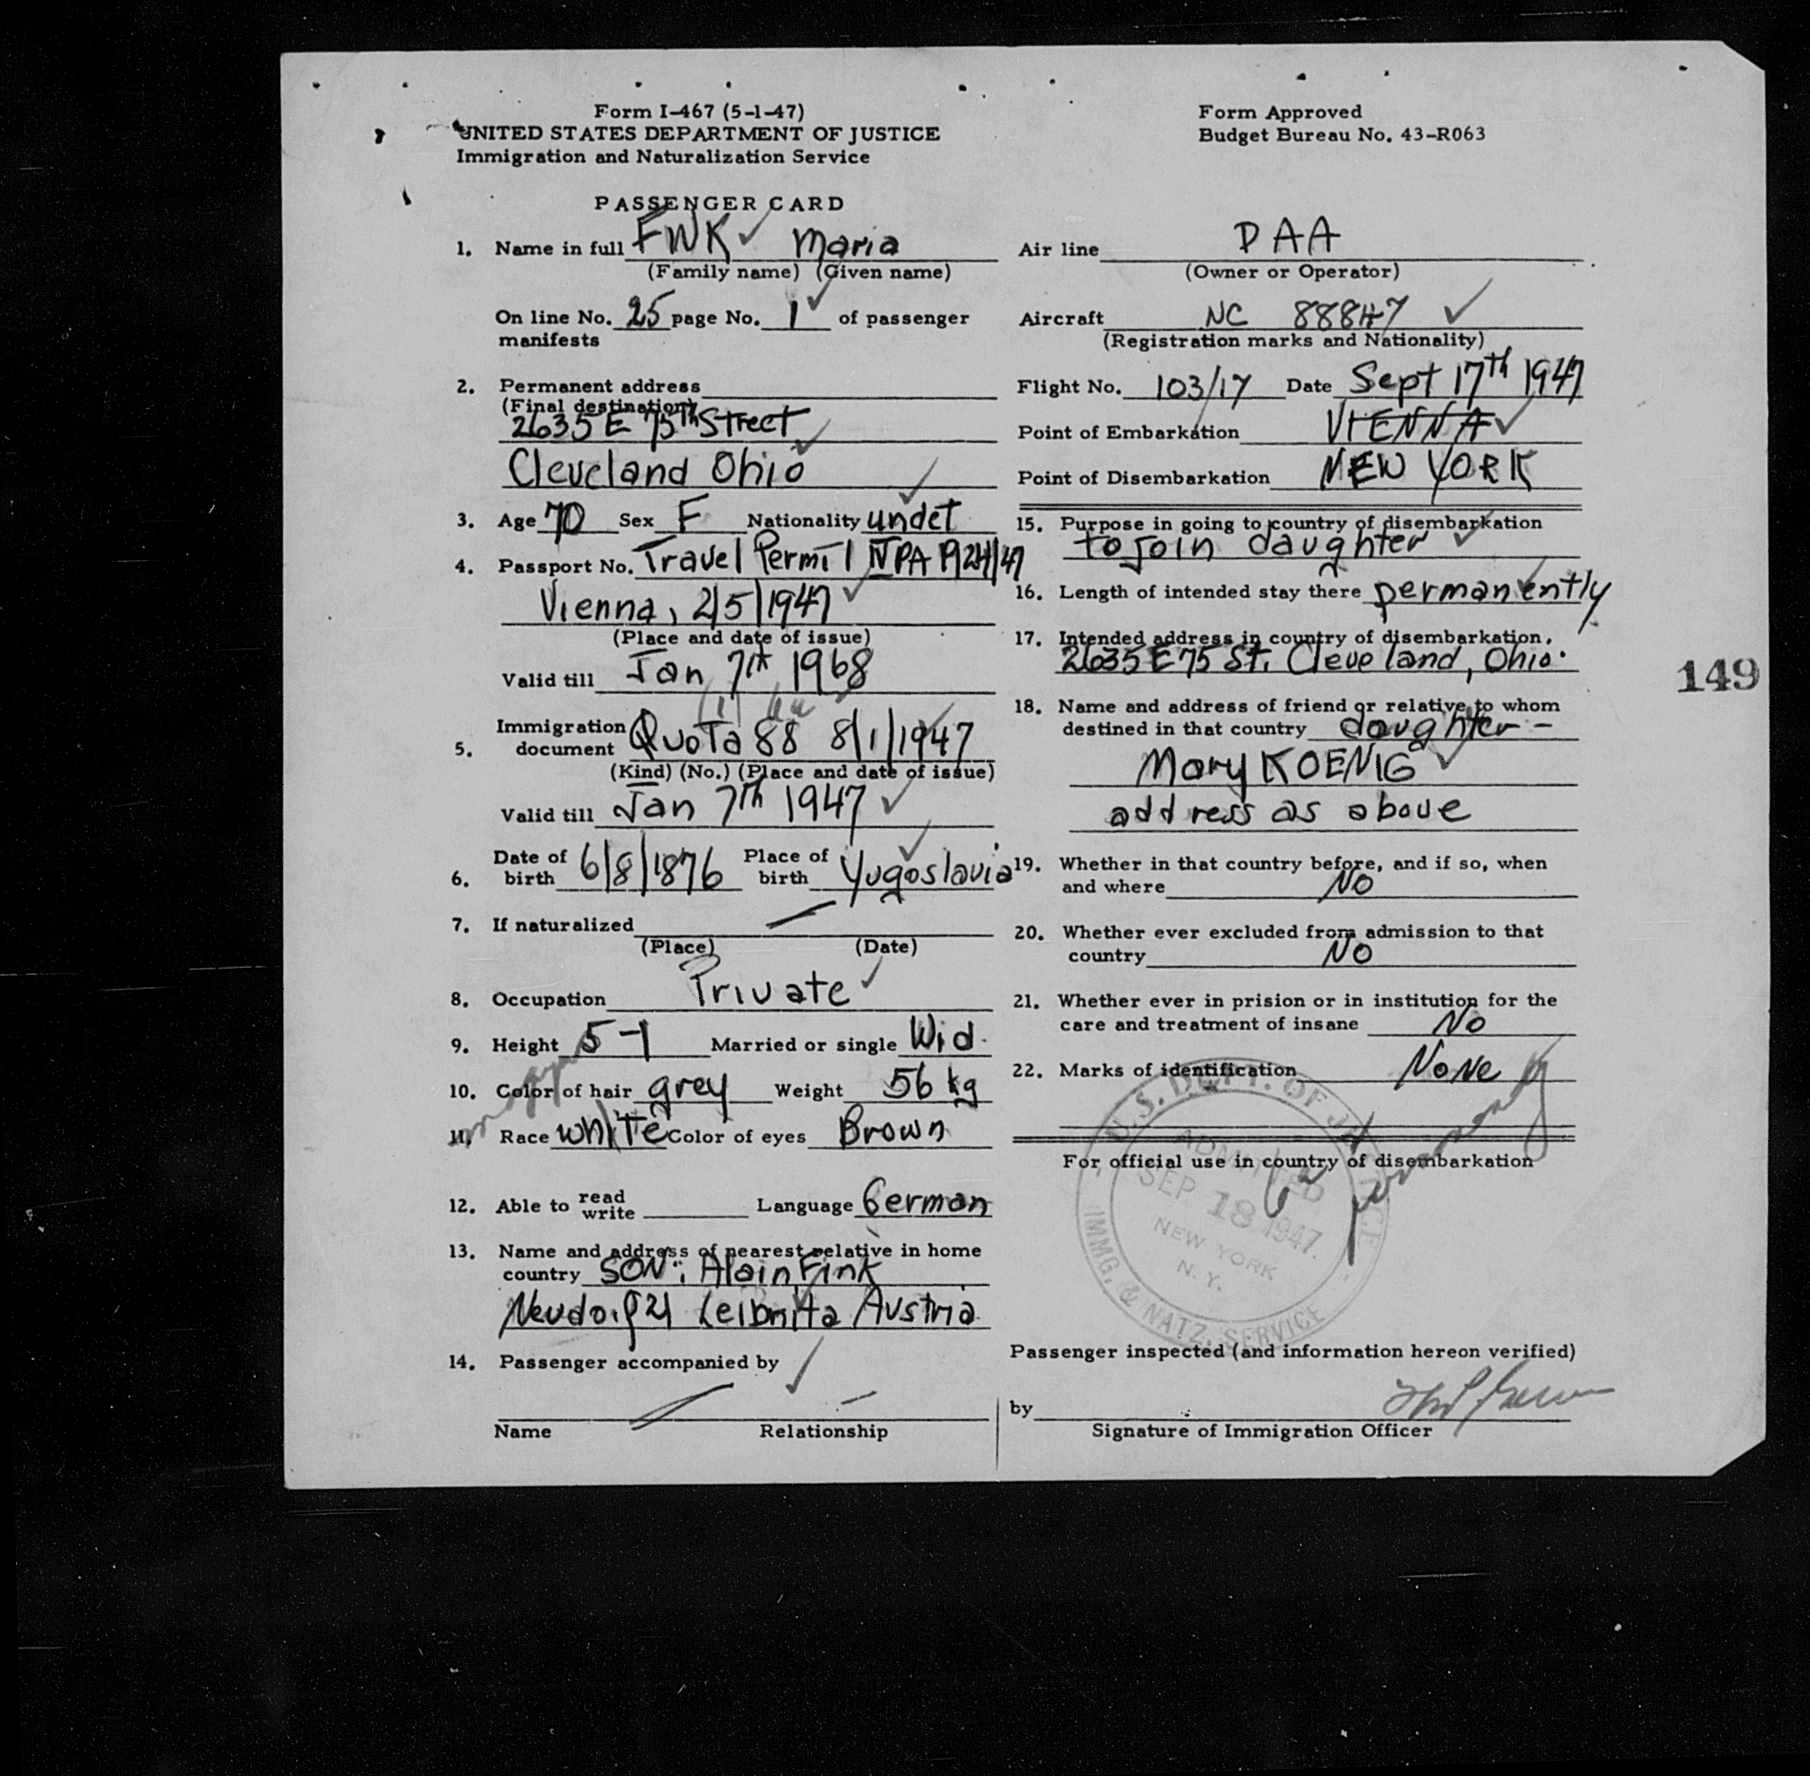 Form I-467 (5-1-47)
UNITED STATES DEPARTMENT OF JUSTICE
Immigration and Naturalization Service
Form Approved
Budget Bureau No. 43-R063
PASSENGER CARD
1. Name in full Maria
(Family name) (Given name)
On line No. 25 page No. 1 of passenger
manifests
2. Permanent address
(Final destination)
2635 E 75th Street
Cleveland Ohio
3. Age 70 Sex F Nationality undet
4. Passport No. Travel Permit
Vienna, 2/5/1947
(Place and date of issue)
Valid till Jan 7th 1968
5. Immigration document Quota 88 8/1/1947
(Kind) (No.) (Place and date of issue)
Valid till Jan 7th 1947
6. Date of birth 6/8/1876 Place of birth Yugoslavia
7. If naturalized
(Place) (Date)
8. Occupation Private
9. Height 5-1 Married or single Wid.
10. Color of hair grey Weight 56 kg
11. Race white Color of eyes Brown
12. Able to read write Language German
13. Name and address of nearest relative in home
country SON: Alain Fink
Austria
14. Passenger accompanied by
Name Relationship
Air line PAA
(Owner or Operator)
Aircraft NC 88847
(Registration marks and Nationality)
Flight No. 103/17 Date Sept 17th 1947
Point of Embarkation VIENNA
Point of Disembarkation NEW YORK
15. Purpose in going to country of disembarkation
to join daughter
16. Length of intended stay there permanently
17. Intended address in country of disembarkation.
2635 E 75 St. Cleveland, Ohio.
18. Name and address of friend or relative to whom
destined in that country daughter-
Mary KOENIG
address as above
19. Whether in that country before, and if so, when
and where NO
20. Whether ever excluded from admission to that
country NO
21. Whether ever in prision or in institution for the
care and treatment of insane No
22. Marks of identification None
For official use in country of disembarkation
U.S. DEPT. OF JUSTICE
ADMITTED
SEP 18 1947
NEW YORK
N.Y.
IMMG. & NATZ. SERVICE
Passenger inspected (and information hereon verified)
by
Signature of Immigration Officer
149